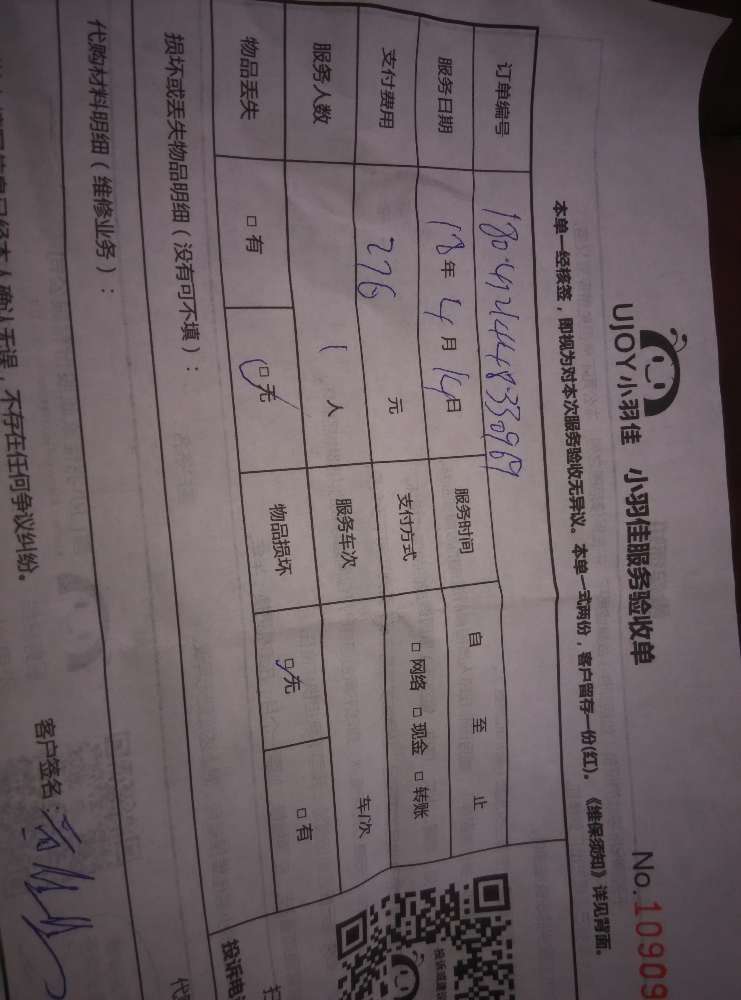 UJOY小羽佳 小羽佳服务验收单
No. 10909
本单一经核签，即视为对本次服务验收无异议。本单一式两份，客户留存一份(红)。《维保须知》详见背面。
订单编号
服务日期 18年 4月 14日 服务时间 自 至 止
支付费用 276 元 支付方式 □网络 □现金 □转账
服务人数 1 人 服务车次 车/次
物品丢失 □有 □无 物品损坏 □无 □有
损坏或丢失物品明细（没有可不填）：
代购材料明细（维修业务）：
本人确认无误，不存在任何争议纠纷。
客户签名：
投诉或建议
投诉电